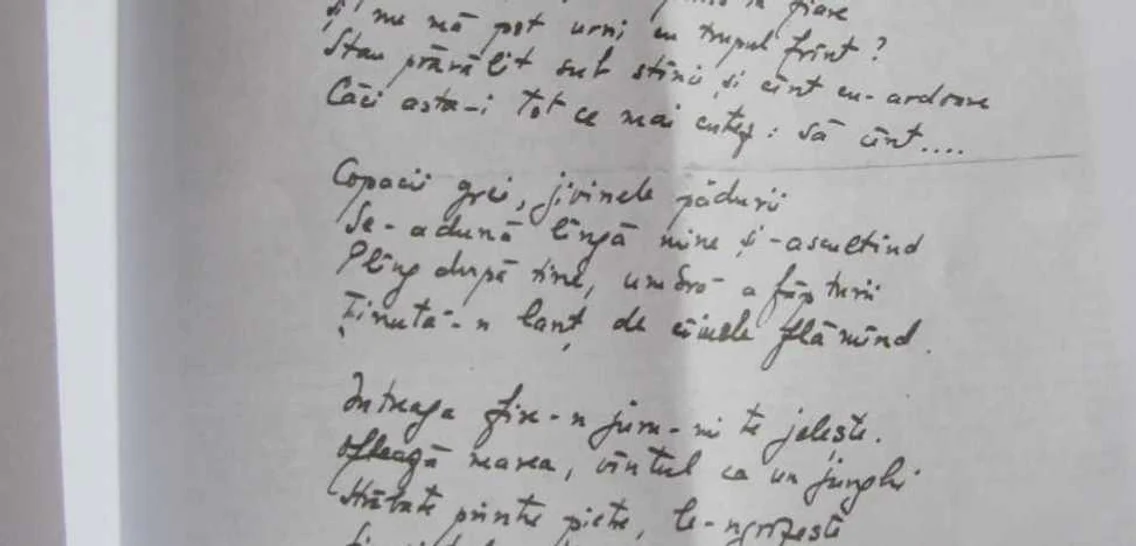 în fiare
Și nu mă pot urni cu trupul frînt?
Stau prăvălit sub stînci și cînt cu-ardoare
Căci asta-i tot ce mai cutez: să cînt....
Copacii grei, jivinele pădurii
Se-adună lîngă mine și-ascultînd
Plîng după tine, umbră a făpturii
Ținută-n lanț de cîinele flămînd.
Întreaga fire-n juru-mi te jelește.
Oftează marea, vîntul ca un junghi
Străbate printre pietre, te-ngrozește